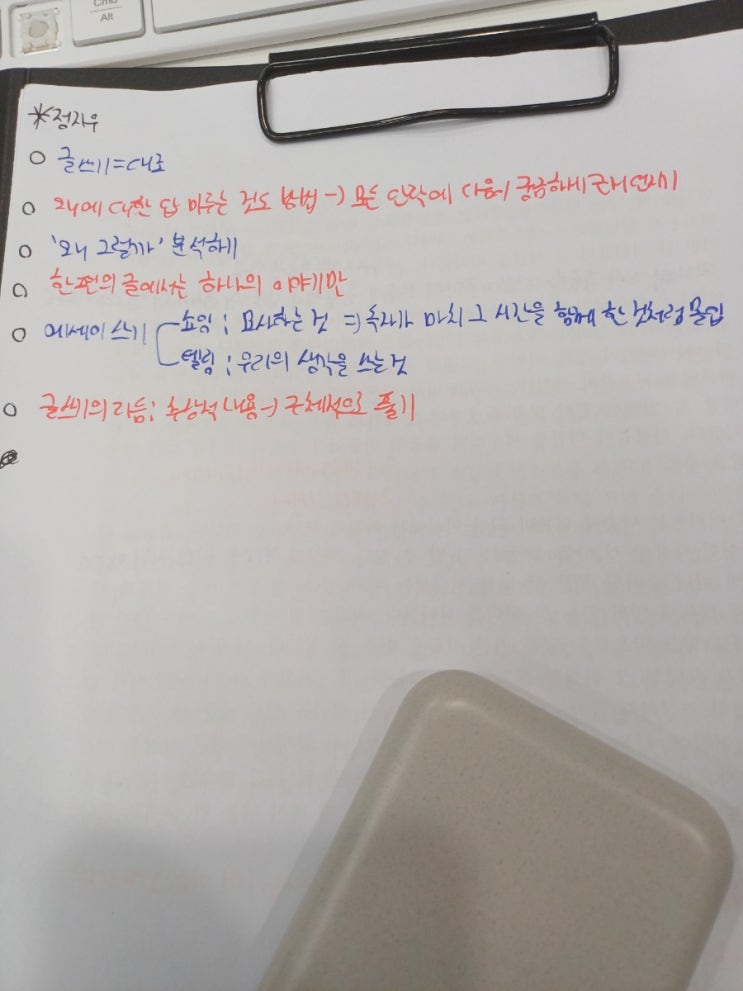 Cmd
Alt
*정지우
○ 글쓰기=대조
○ 왜에 대한 답 미루는 것도 방법 → 모든 단락에 다음이 궁금하게
○ '왜 그럴까' 분석하기
○ 한편의 글에서는 하나의 이야기만
○ 에세이 쓰기 쇼잉; 묘사하는 것 ⇒ 독자가 마치 그 시간을 함께 한 것처럼 몰입
텔링; 우리의 생각을 쓰는 것
○ 글쓰기의 리듬; 추상적 내용 → 구체적으로 풀기